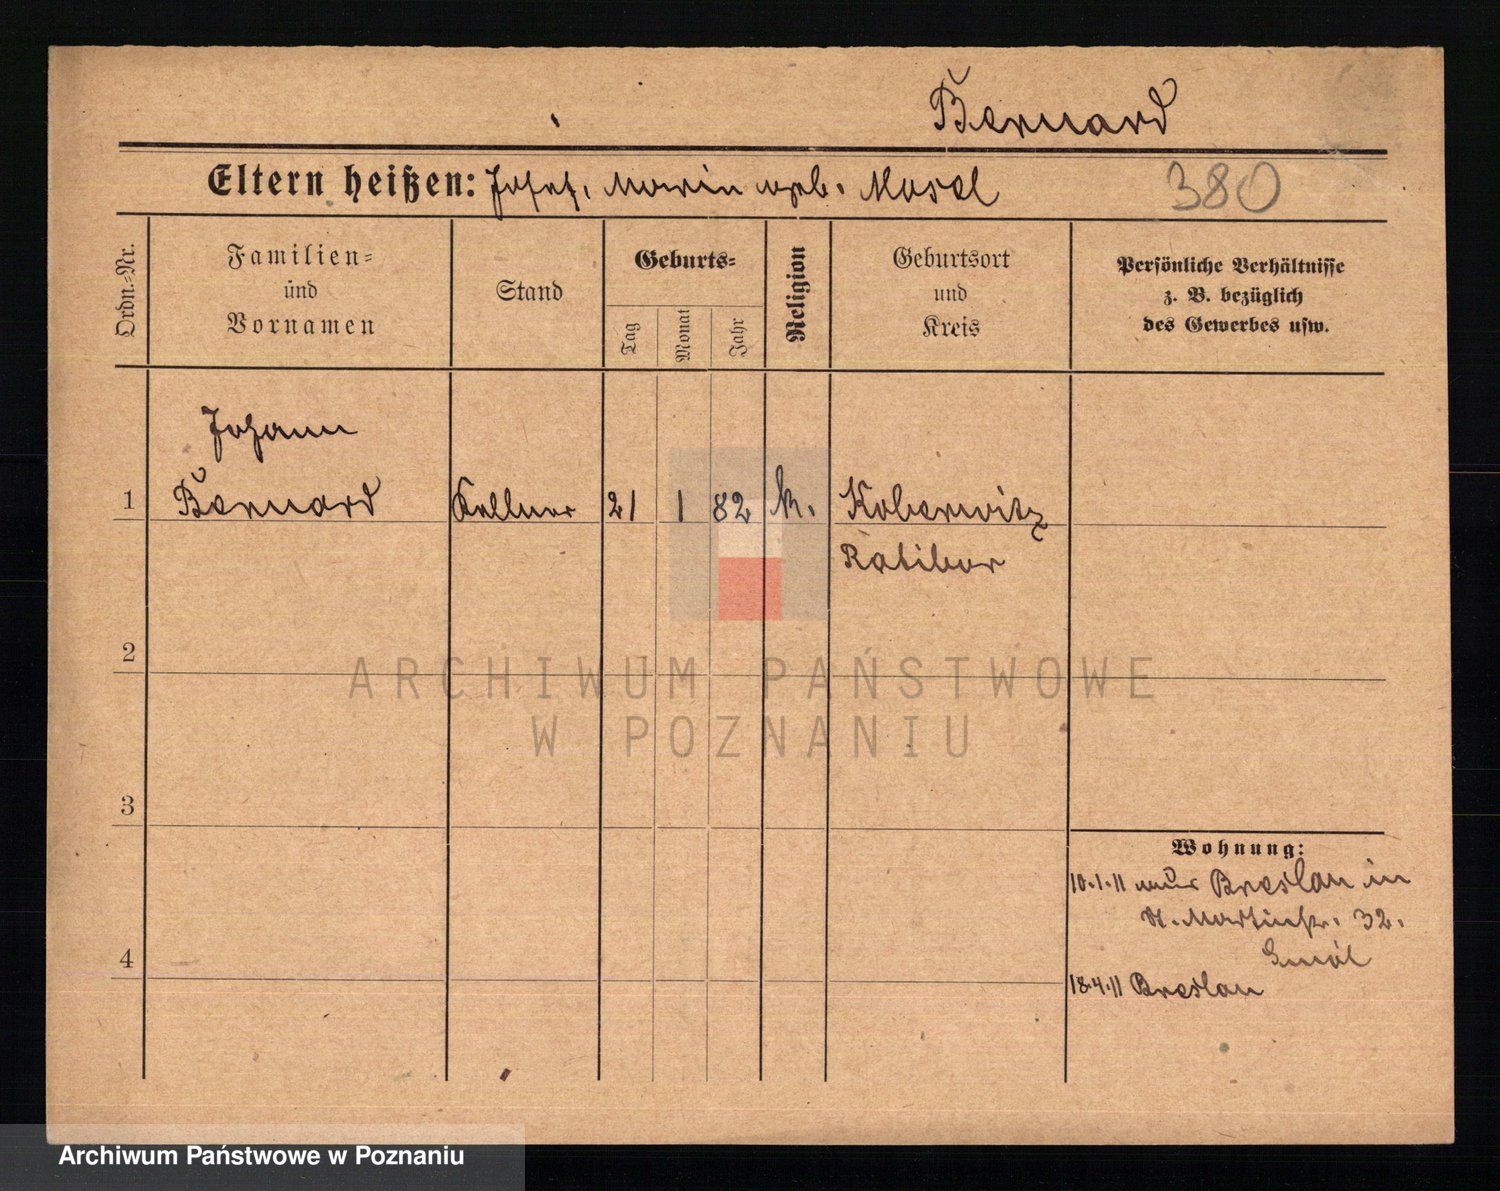 Bernard
Eltern heißen: Josef, Maria geb. Mosel
380
Ordn.=Nr.
Familien=
und
Vornamen
Stand
Geburts=
Tag
Monat
Jahr
Religion
Geburtsort
und
Kreis
Persönliche Verhältnisse
z. B. bezüglich
des Gewerbes usw.
Johann
1 Bernard Kellner 21 1 82 k. Koberwitz
Ratibor
2
3
4
Wohnung:
10.1.11 aus Breslau in
St. Martinstr. 32.
18.4.11 Breslau
ARCHIWUM PAŃSTWOWE
W POZNANIU
Archiwum Państwowe w Poznaniu